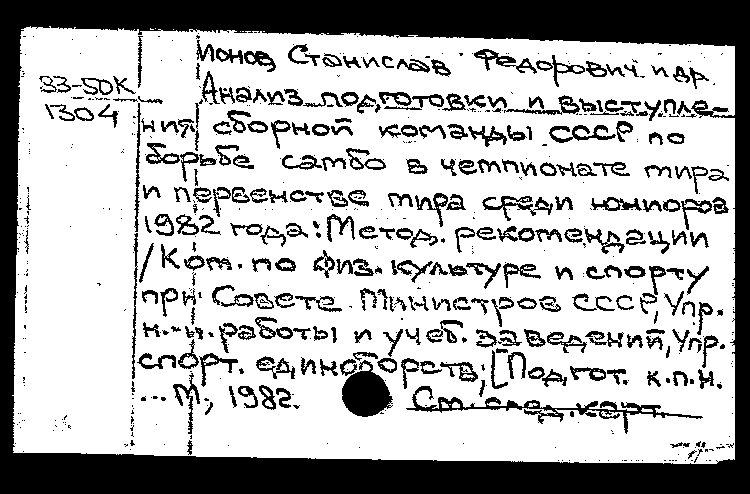 Ионов Станислав Федорович и др.
83-50К
1304
Анализ подготовки и выступле-
ния сборной команды СССР по
борьбе самбо в чемпионате мира
и первенстве мира среди юниоров
1982 года: Метод. рекомендации
/Ком. по физ. культуре и спорту
при Совете Министров СССР, Упр.
н.-и. работы и учеб. заведений, Упр.
спорт. единоборств; [Подгот. к.п.н.
... М, 1982. См. след. карт.